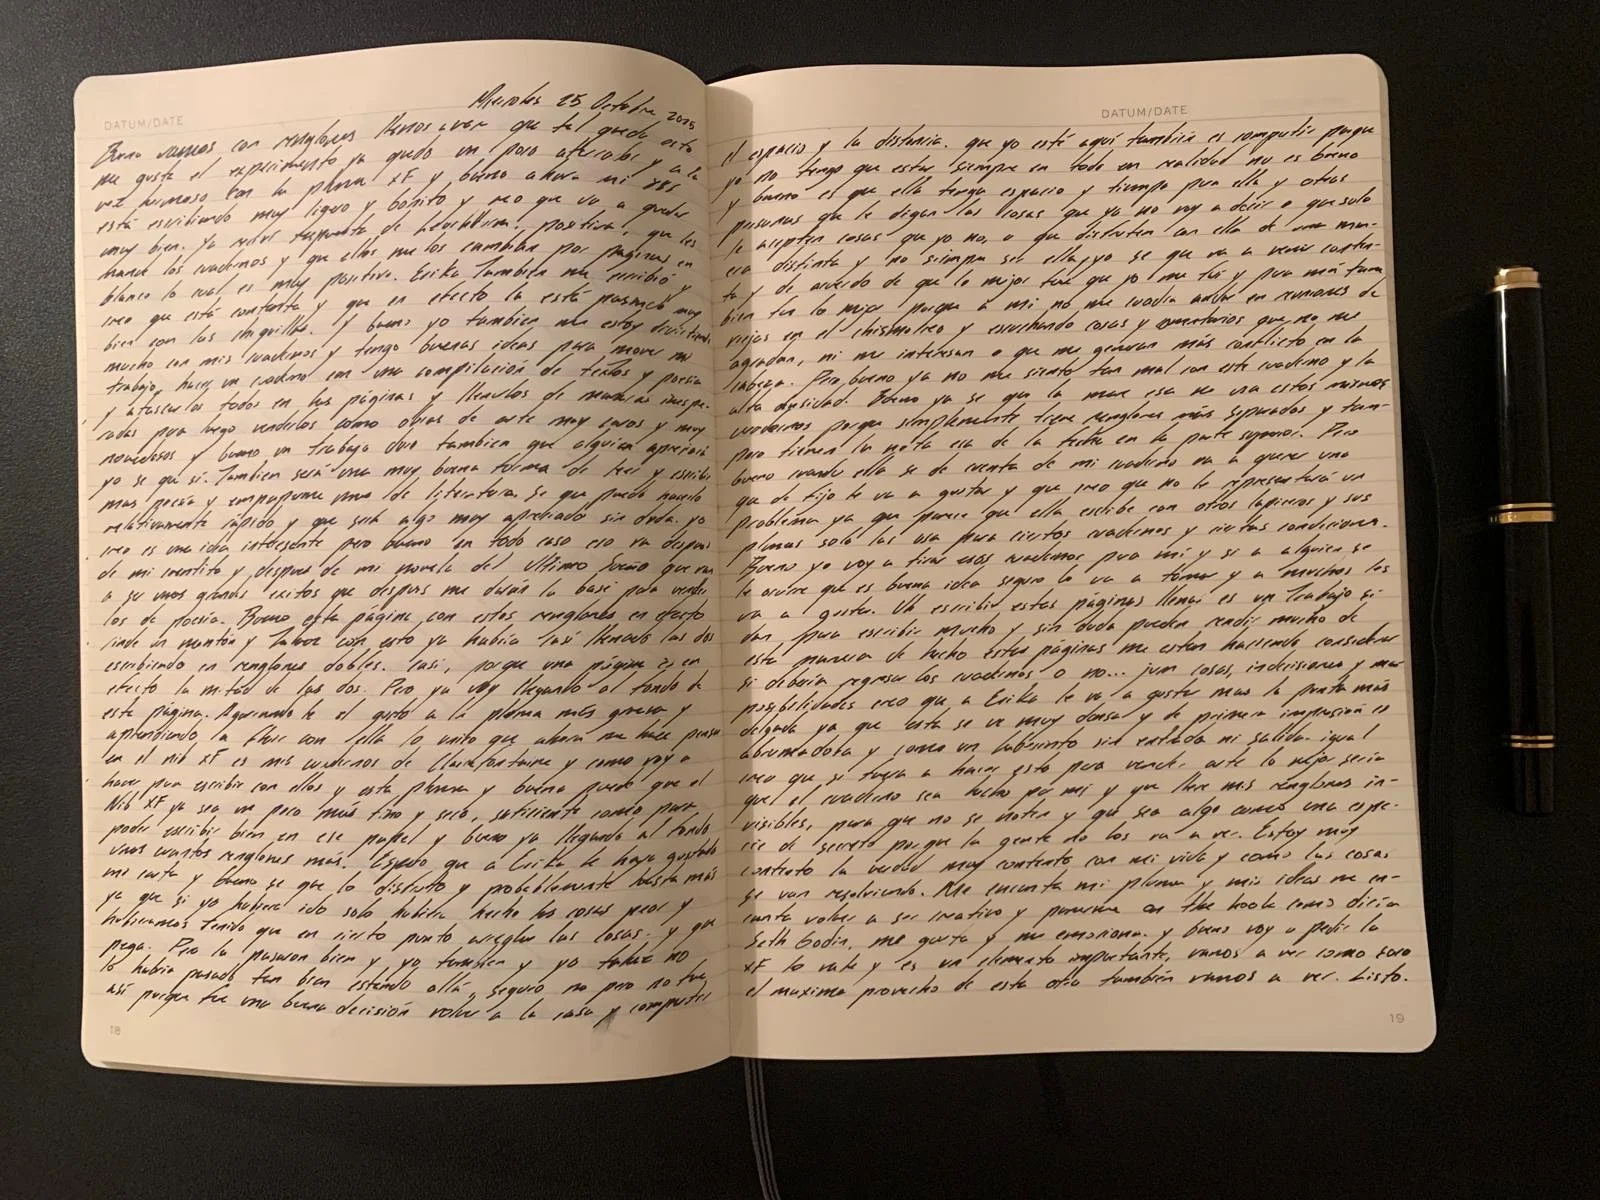 DATUM/DATE
Miercoles 25 Octubre 2015
Bueno vamos con renglones llenos a ver que tal queda esto
me gusta el experimento ya quedo un poco aterrador y a la
vez hermoso con la pluma XF y bueno ahora mi
está escribiendo muy ligero y bonito y creo que va a quedar
muy bien. Ya recivi respuesta de Leuchtturm, positiva, que les
mande los cuadernos y que ellos me los cambian por paginas en
blanco lo cual es muy positivo. Erika También me escribió y
creo que está contenta y que en efecto la está pasando muy
bien con las chiquillas. Y bueno yo tambien me estoy divirtiendo
mucho con mis cuadernos y tengo buenas ideas para mover mi
trabajo, hacer un cuaderno con una compilación de textos y poesia
y atascarlos todos en las páginas y llenarlos de maneras inespe-
radas para luego venderlos como obras de arte muy caros y muy
novedosos y bueno un trabajo duro tambien que alguien apreciará
yo se que si. Tambien será una muy buena forma de leer y escribir
mas poesia y empaparme mas de literatura. Se que puedo hacerlo
relativamente rápido y que será algo muy apreciado sin duda. yo
creo es una idea interesante pero bueno en todo caso eso va despues
de mi cuentito y despues de mi novela del Ultimo Sueño que van
a ser unos grandes exitos que despues me darán la base para vender
los de poesia. Bueno esta página con estos renglones en efecto
rinde un montón y talvez con esto ya habria casi llenado las dos
escribiendo en renglones dobles. Casi, porque una página es en
efecto la mitad de las dos. Pero ya voy llegando al fondo de
esta página. Agarrando le el gusto a la pluma más gruesa y
aprendiendo a fluir con ella lo unico que ahora me hace pensar
en el nib XF es mis cuadernos de Clairefontaine y como voy a
hacer para escribir con ellos y esta pluma y bueno puede que el
Nib XF ya sea un poco más fino y seco, suficiente como para
poder escribir bien en ese papel y bueno ya llegando al fondo
unos cuantos renglones más. Espero que a Erika le haya gustado
mi carta y bueno se que lo disfruto y probablemente hasta más
ya que si yo hubiera ido solo habria hecho las cosas peor y
hubieramos tenido que en cierto punto arreglar las cosas. y que
pega. Pero la pasaron bien y yo tambien y yo talvez no
lo habria pasado tan bien estando allá, seguro no pero no fue
así porque fue una buena decisión volver a la casa y compartir
18
DATUM/DATE
el espacio y la distancia. que yo esté aquí también es compartir porque
yo no tengo que estar siempre en todo en realidad no es bueno
y bueno es que ella tenga espacio y tiempo para ella y otras
personas que le digan las cosas que yo no voy a decir o que solo
le acepten cosas que yo no, o que disfruten con ella de una man-
era distinta y no siempre ser ella, yo se que va a venir conten-
ta y de acuerdo de que lo mejor fue que yo me fui y para mí tam
bien fue lo mejor porque a mi no me cuadra andar en reuniones de
viejas en el chismorreo y escuchando cosas y comentarios que no me
agradan, ni me interesan o que me generan más conflicto en la
cabeza. Pero bueno ya no me siento tan mal con este cuaderno y la
alta densidad. Bueno ya se que la mae esa no usa estos mismos
cuadernos porque simplemente tiene renglones más separados y tam-
poco tienen la nota esa de la fecha en la parte superior. Pero
bueno cuando ella se de cuenta de mi cuaderno va a querer una
que de fijo le va a gustar y que creo que no le representará un
problema ya que parece que ella escribe con otros lapiceros y sus
plumas solo las usa para ciertos cuadernos y ciertas condiciones.
Bueno yo voy a tirar esos cuadernos para mí y si a alguien se
le ocurre que es buena idea seguro lo va a tomar y a muchos les
va a gustar. Ud escribir estas páginas llenas es un trabajo si
dan para escribir mucho y sin duda pueden rendir mucho de
esta manera de hecho estas páginas me estan haciendo considerar
si deberia regresar los cuadernos o no... jum cosas, indecisiones y mas
posibilidades creo que a Erika le va a gustar mas la punta más
delgada ya que esta se ve muy densa y de primera impresión es
abrumadora y como un laberinto sin entrada ni salida. igual
creo que si fuera a hacer esto para vender arte lo mejor seria
que el cuaderno sea hecho por mi y que lleve mis renglones in-
visibles, para que no se noten y que sea algo como una espe-
cie de secreto porque la gente no los va a ver. Estoy muy
contento la verdad muy contento con mi vida y como las cosas
se van resolviendo. Me encanta mi pluma y mis ideas me en-
canta volver a ser creativo y ponerme on the hook como diria
Seth Godin, me gusta y me emociona. y bueno voy a pedir la
XF lo vale y es un elemento importante, vamos a ver como saco
el maximo provecho de esta otra también vamos a ver. Listo.
19